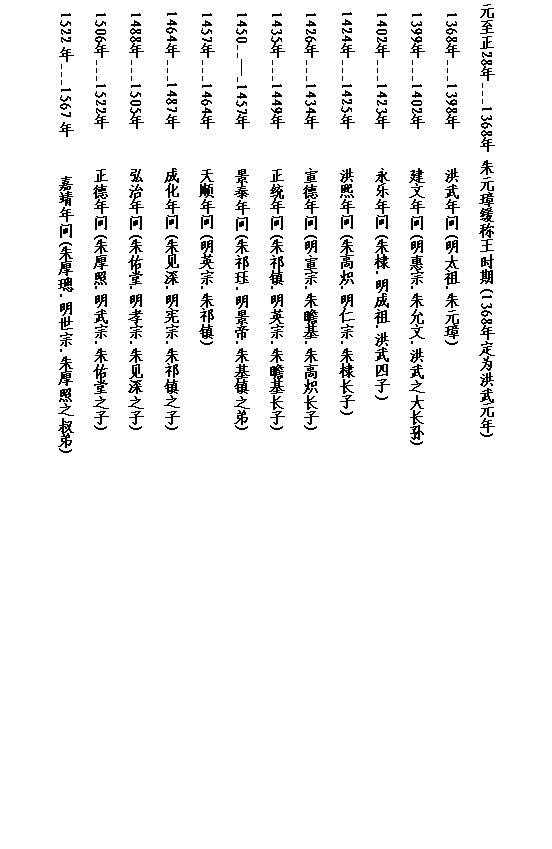 元至正28年---1368年 朱元璋缓称王时期(1368年定为洪武元年)
1368年---1398年 洪武年间(明太祖.朱元璋)
1399年---1402年 建文年间(明惠宗.朱允文.洪武之大长孙)
1402年---1423年 永乐年间(朱棣.明成祖.洪武四子)
1424年---1425年 洪熙年间(朱高炽.明仁宗.朱棣长子)
1426年---1434年 宣德年间(明宣宗.朱瞻基.朱高炽长子)
1435年---1449年 正统年间(朱祁镇.明英宗.朱瞻基长子)
1450..——.1457年 景泰年间(朱祁珏.明景帝.朱基镇之弟)
1457年---1464年 天顺年间(明英宗.朱祁镇)
1464年---1487年 成化年间(朱见深.明宪宗.朱祁镇之子)
1488年---1505年 弘治年间(朱佑堂.明孝宗.朱见深之子)
1506年---1522年 正德年间(朱厚照.明武宗.朱佑堂之子)
1522年---1567年 嘉靖年间(朱厚璁.明世宗.朱厚照之叔弟)